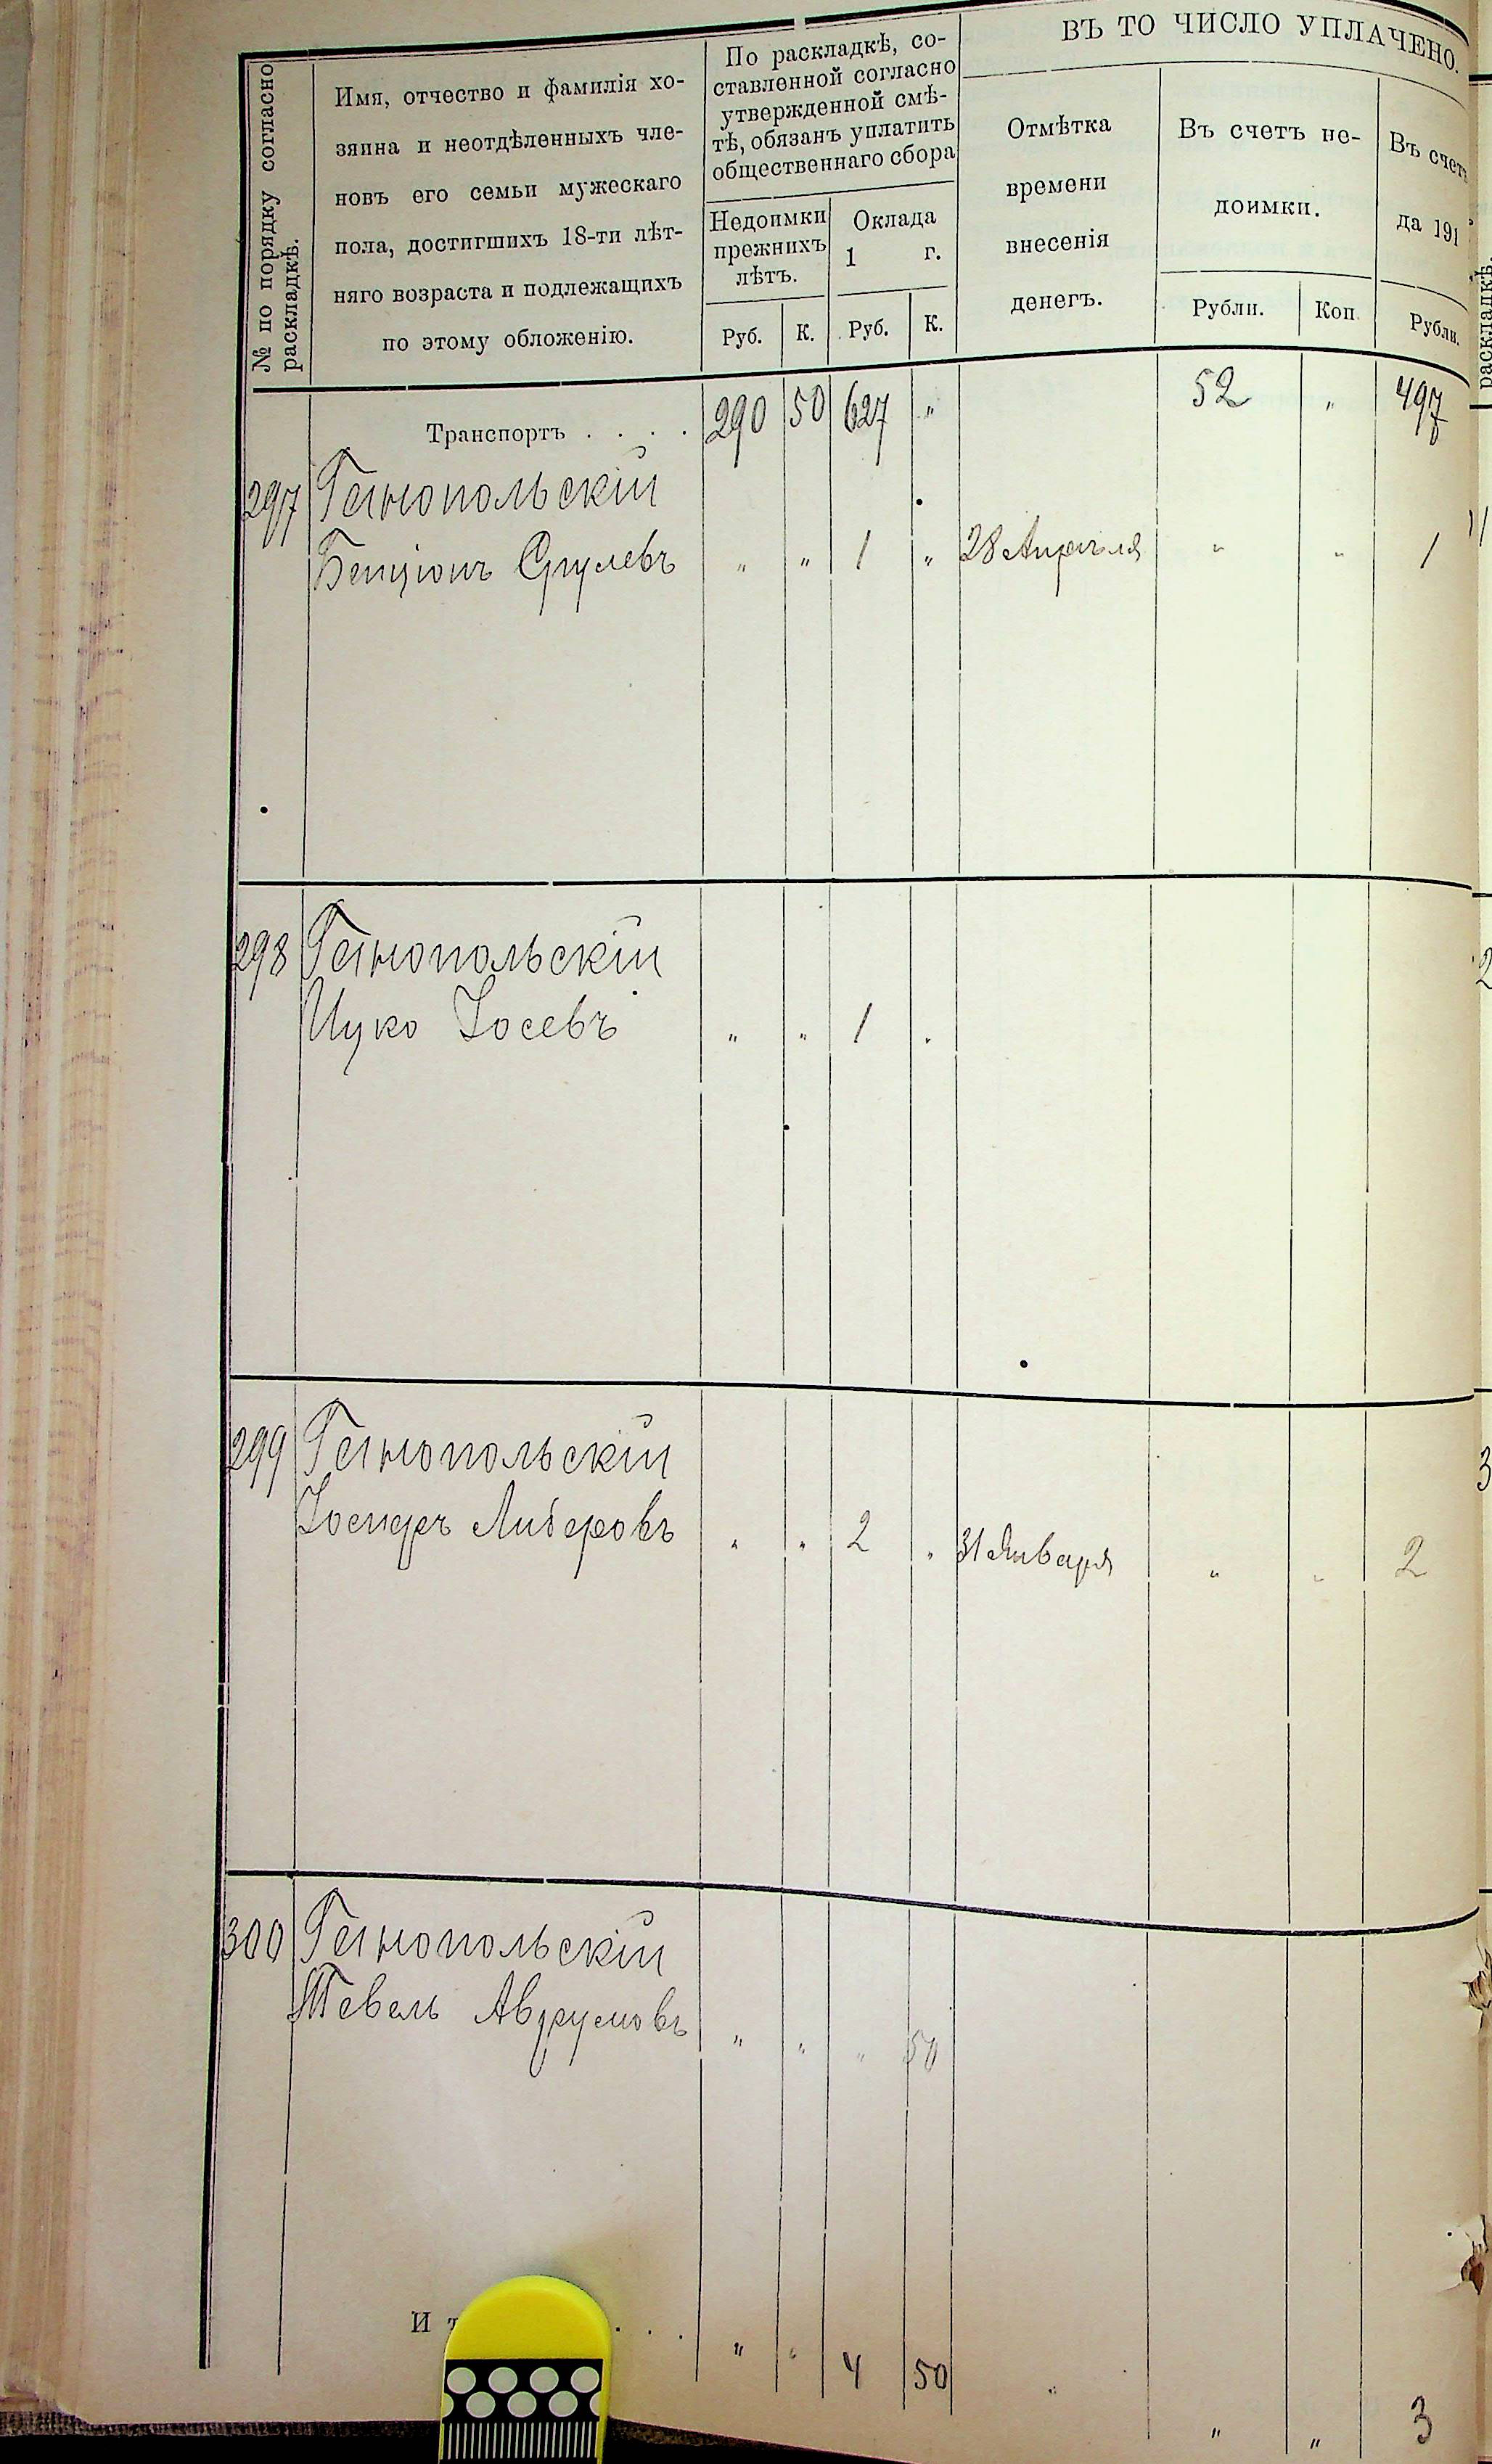 № по порядку согласно
раскладкѣ.
Имя, отчество и фамилія хо-
зяина и неотдѣленныхъ чле-
новъ его семьи мужескаго
пола, достигшихъ 18-ти лѣт-
няго возраста и подлежащихъ
по этому обложенію.
По раскладкѣ, со-
ставленной согласно
утвержденной смѣ-
тѣ, обязанъ уплатить
общественнаго сбора
Недоимки
прежнихъ
лѣтъ.
Оклада
1 г.
Руб. К. Руб. К.
ВЪ ТО ЧИСЛО УПЛАЧЕНО.
Отмѣтка
времени
внесенія
денегъ.
Въ счетъ не-
доимки.
Рубли. Коп.
Въ счетъ
да 191
Рубли.
раскладкѣ.
Транспортъ . . . . 290 50 627 " 52 " 497
297 Гайнопольскій
Бенціонъ Срулевъ " " 1 " 28 Апрѣля " " 1
298 Гайнопольскій
Ицко Іосевъ " " 1 "
299 Гайнопольскій
Іосифъ Либеровъ " " 2 " 31 Января " " 2
300 Гайнопольскій
Тевель Аврумовъ " " " 50
И т . . . " " 4 50 " " 3